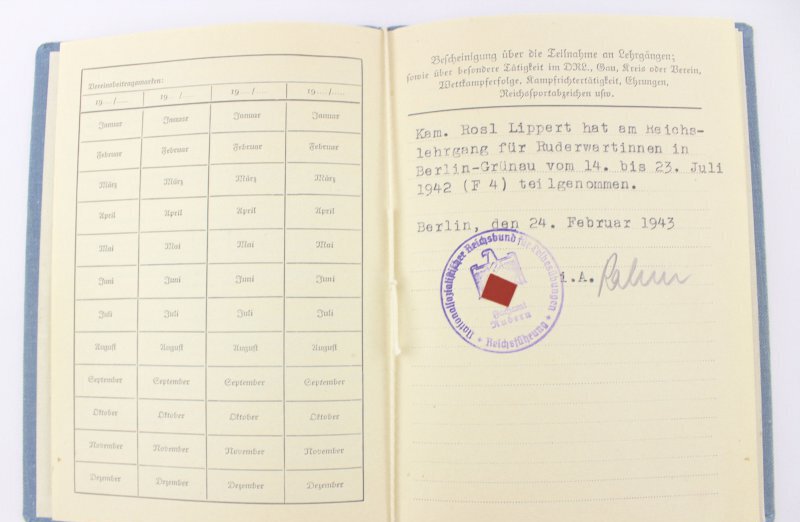 Vereinsbeitragsmarken:
19..../..... 19..../..... 19..../..... 19..../.....
Januar Januar Januar Januar
Februar Februar Februar Februar
März März März März
April April April April
Mai Mai Mai Mai
Juni Juni Juni Juni
Juli Juli Juli Juli
August August August August
September September September September
Oktober Oktober Oktober Oktober
November November November November
Dezember Dezember Dezember Dezember
Bescheinigung über die Teilnahme an Lehrgängen;
sowie über besondere Tätigkeit im DRL., Gau, Kreis oder Verein,
Wettkampferfolge, Kampfrichtertätigkeit, Ehrungen,
Reichssportabzeichen usw.
Kam. Rosl Lippert hat am Reichs-
lehrgang für Ruderwartinnen in
Berlin-Grünau vom 14. bis 23. Juli
1942 (F 4) teilgenommen.
Berlin, den 24. Februar 1943
i.A.
Nationalsozialistischer Reichsbund für Leibesübungen
Fachamt
Rudern
* Reichsführung *